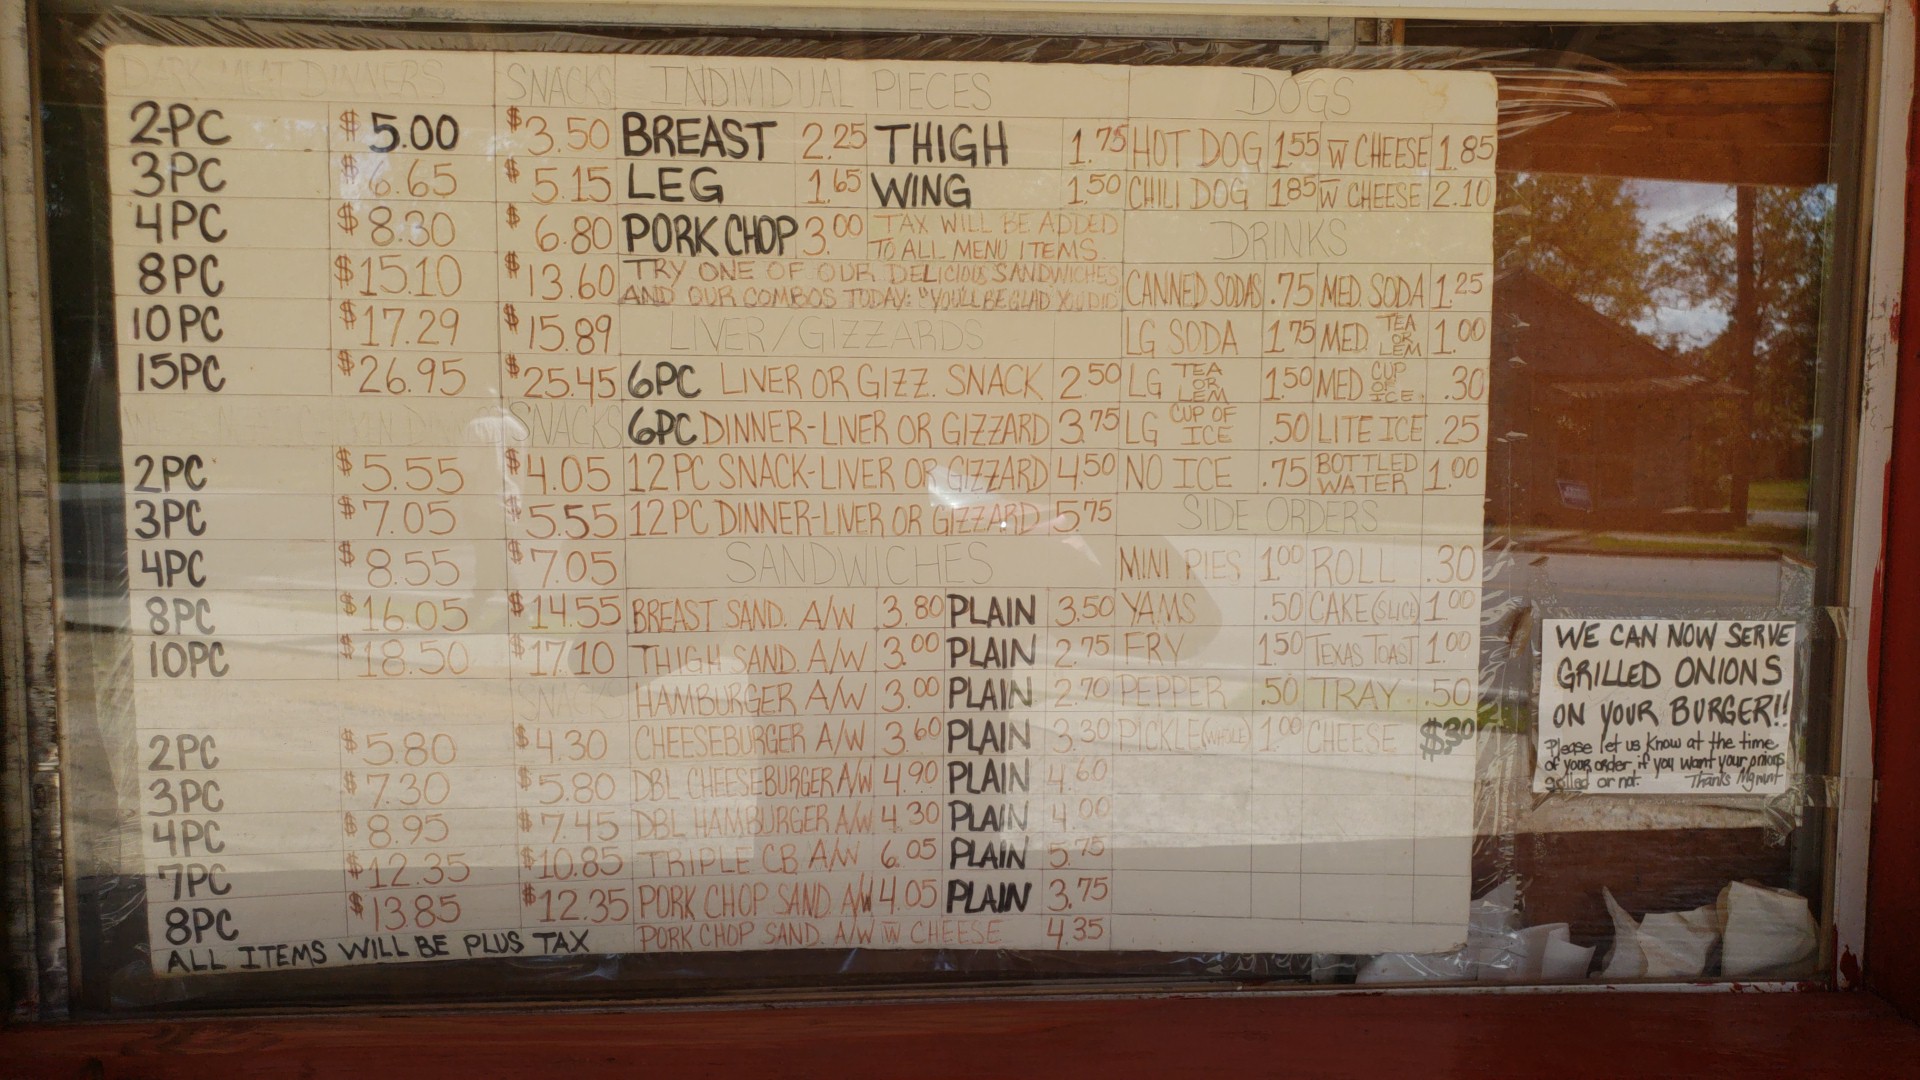 DARK MEAT DINNERS SNACKS
2-PC $5.00 $3.50
3PC $6.65 $5.15
4PC $8.30 $6.80
8PC $15.10 $13.60
10PC $17.29 $15.89
15PC $26.95 $25.45
SNACKS
2PC $5.55 $4.05
3PC $7.05 $5.55
4PC $8.55 $7.05
8PC $16.05 $14.55
10PC $18.50 $17.10
SNACKS
2PC $5.80 $4.30
3PC $7.30 $5.80
4PC $8.95 $7.45
7PC $12.35 $10.85
8PC $13.85 $12.35
ALL ITEMS WILL BE PLUS TAX
INDIVIDUAL PIECES
BREAST 2.25 THIGH 1.75
LEG 1.65 WING 1.50
PORK CHOP 3.00 TAX WILL BE ADDED
TO ALL MENU ITEMS.
TRY ONE OF OUR DELICIOUS SANDWICHES
AND OUR COMBOS TODAY: "YOU'LL BE GLAD YOU DID"
LIVER/GIZZARDS
6PC LIVER OR GIZZ. SNACK 2.50
6PC DINNER-LIVER OR GIZZARD 3.75
12 PC SNACK-LIVER OR GIZZARD 4.50
12 PC DINNER-LIVER OR GIZZARD 5.75
SANDWICHES
BREAST SAND. A/W 3.80 PLAIN 3.50
THIGH SAND. A/W 3.00 PLAIN 2.75
HAMBURGER A/W 3.00 PLAIN 2.70
CHEESEBURGER A/W 3.60 PLAIN 3.30
DBL CHEESEBURGER A/W 4.90 PLAIN 4.60
DBL HAMBURGER A/W 4.30 PLAIN 4.00
TRIPLE CB. A/W 6.05 PLAIN 5.75
PORK CHOP SAND A/W 4.05 PLAIN 3.75
PORK CHOP SAND. A/W W CHEESE 4.35
DOGS
HOT DOG 1.55 W CHEESE 1.85
CHILI DOG 1.85 W CHEESE 2.10
DRINKS
CANNED SODAS .75 MED. SODA 1.25
LG SODA 1.75 MED. TEA OR LEM 1.00
LG TEA OR LEM 1.50 MED CUP OF ICE. .30
LG CUP OF ICE .50 LITE ICE .25
NO ICE .75 BOTTLED WATER 1.00
SIDE ORDERS
MINI PIES 1.00 ROLL .30
YAMS .50 CAKE (SLICE) 1.00
FRY 1.50 TEXAS TOAST 1.00
PEPPER .50 TRAY .50
PICKLE (WHOLE) 1.00 CHEESE $.30
WE CAN NOW SERVE
GRILLED ONIONS
ON YOUR BURGER!!
Please let us know at the time
of your order, if you want your onions
grilled or not. Thanks Mgmnt